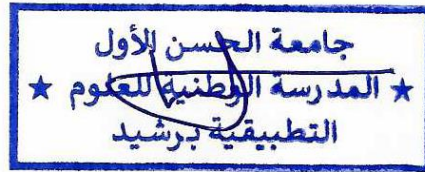 جامعة الحسن الأول
★ المدرسة الوطنية للعلوم ★
التطبيقية برشيد